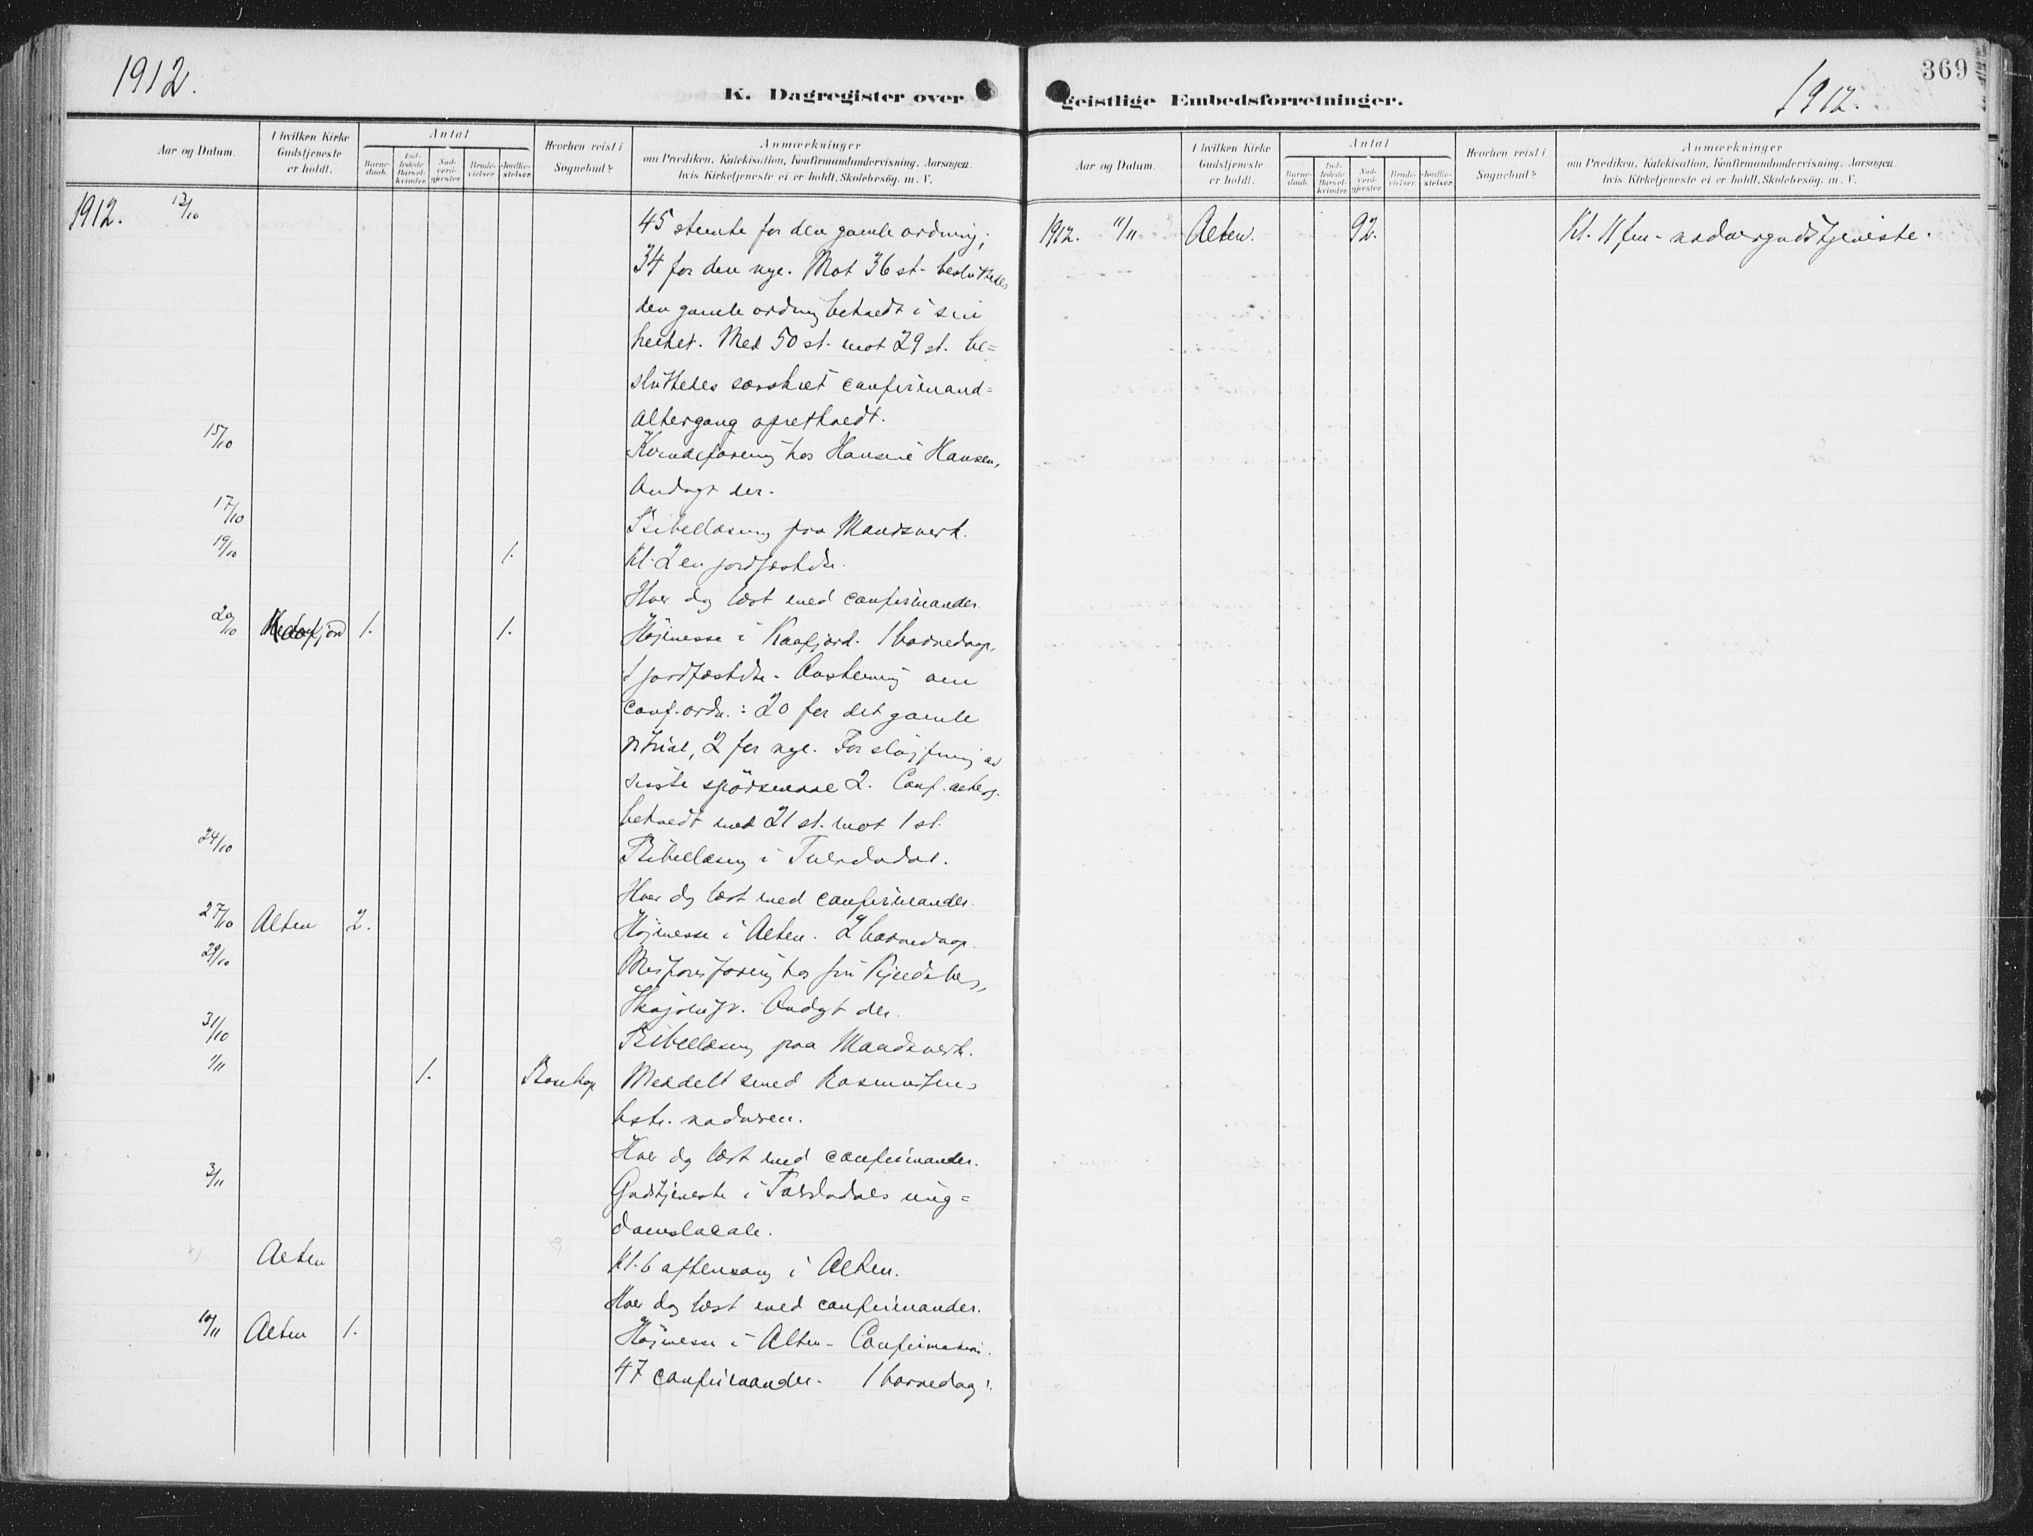 1912.
K. Dagregister over
Aar og Datum.
I hvilken Kirke Gudstjeneste er holdt.
Antal
Barne-daab.
Ind-ledede Barsel-kvinder.
Nad-verd-gjester.
Brude-vielser.
Jordfæ-stelser.
Hvorhen reist i Sognebud?
Anmærkninger
om Prædiken, Katekisation, Konfirmandundervisning, Aarsagen,
hvis Kirketjeneste ei er holdt, Skolebesøg, m. V.
1912. 13/10 45 stemte for den gamle ordning;
34 for den nye. Mot 36 st. besluttedes
den gamle ordning behaldt i sin
helhet. Med 50 st. mot 29 st. be=
sluttedes særskilt confirmand=
altergang opretholdt.
15/10 Kvindeforening hos Hansine Hansen,
Andagt der.
17/10 Bibellæsning paa Mandsverk.
19/10 1. Kl. 2 en jordfæstelse.
Hver dag læst med confirmander.
20/10 1. 1. Højmesse i Kaafjord. 1 barnedaap,
1 jordfæstelse. Avstemning om
conf. ordn.: 20 for det gamle
ritual, 2 for nye. For sløjfning av
siste spörsmaal 2. Conf. alterg.
behaldt med 21 st. mot 1 st.
24/10 Bibellæsning i Tverelvdal.
Hver dag læst med confirmander.
27/10 Alten 2. Højmesse i Alten. 2 barnedaap.
29/10 Misjonsforening hos fru
Andagt der.
31/10 Bibellæsning paa Mandsverk.
1/11 1. Bosekop Meddelt smed Rasmussen
nadveren.
Hver dag læst med confirmander.
3/11 Gudstjeneste i Tverelvdalens ung=
domslocale.
Alten Kl. 6 aftensang i Alten.
Hver dag læst med confirmander.
10/11 Alten 1. Højmesse i Alten. Confirmation.
47 confirmander. 1 barnedaap.
369
geistlige Embedsforretninger.
1912.
Aar og Datum.
I hvilken Kirke Gudstjeneste er holdt.
Antal
Barne-daab.
Ind-ledede Barsel-kvinder.
Nad-verd-gjester.
Brude-vielser.
Jordfæ-stelser.
Hvorhen reist i Sognebud?
Anmærkninger
om Prædiken, Katekisation, Konfirmandundervisning, Aarsagen,
hvis Kirketjeneste ei er holdt, Skolebesøg, m. V.
1912. 11/11 Alten. 92. Kl. 11 fm. nadvergudstjeneste.